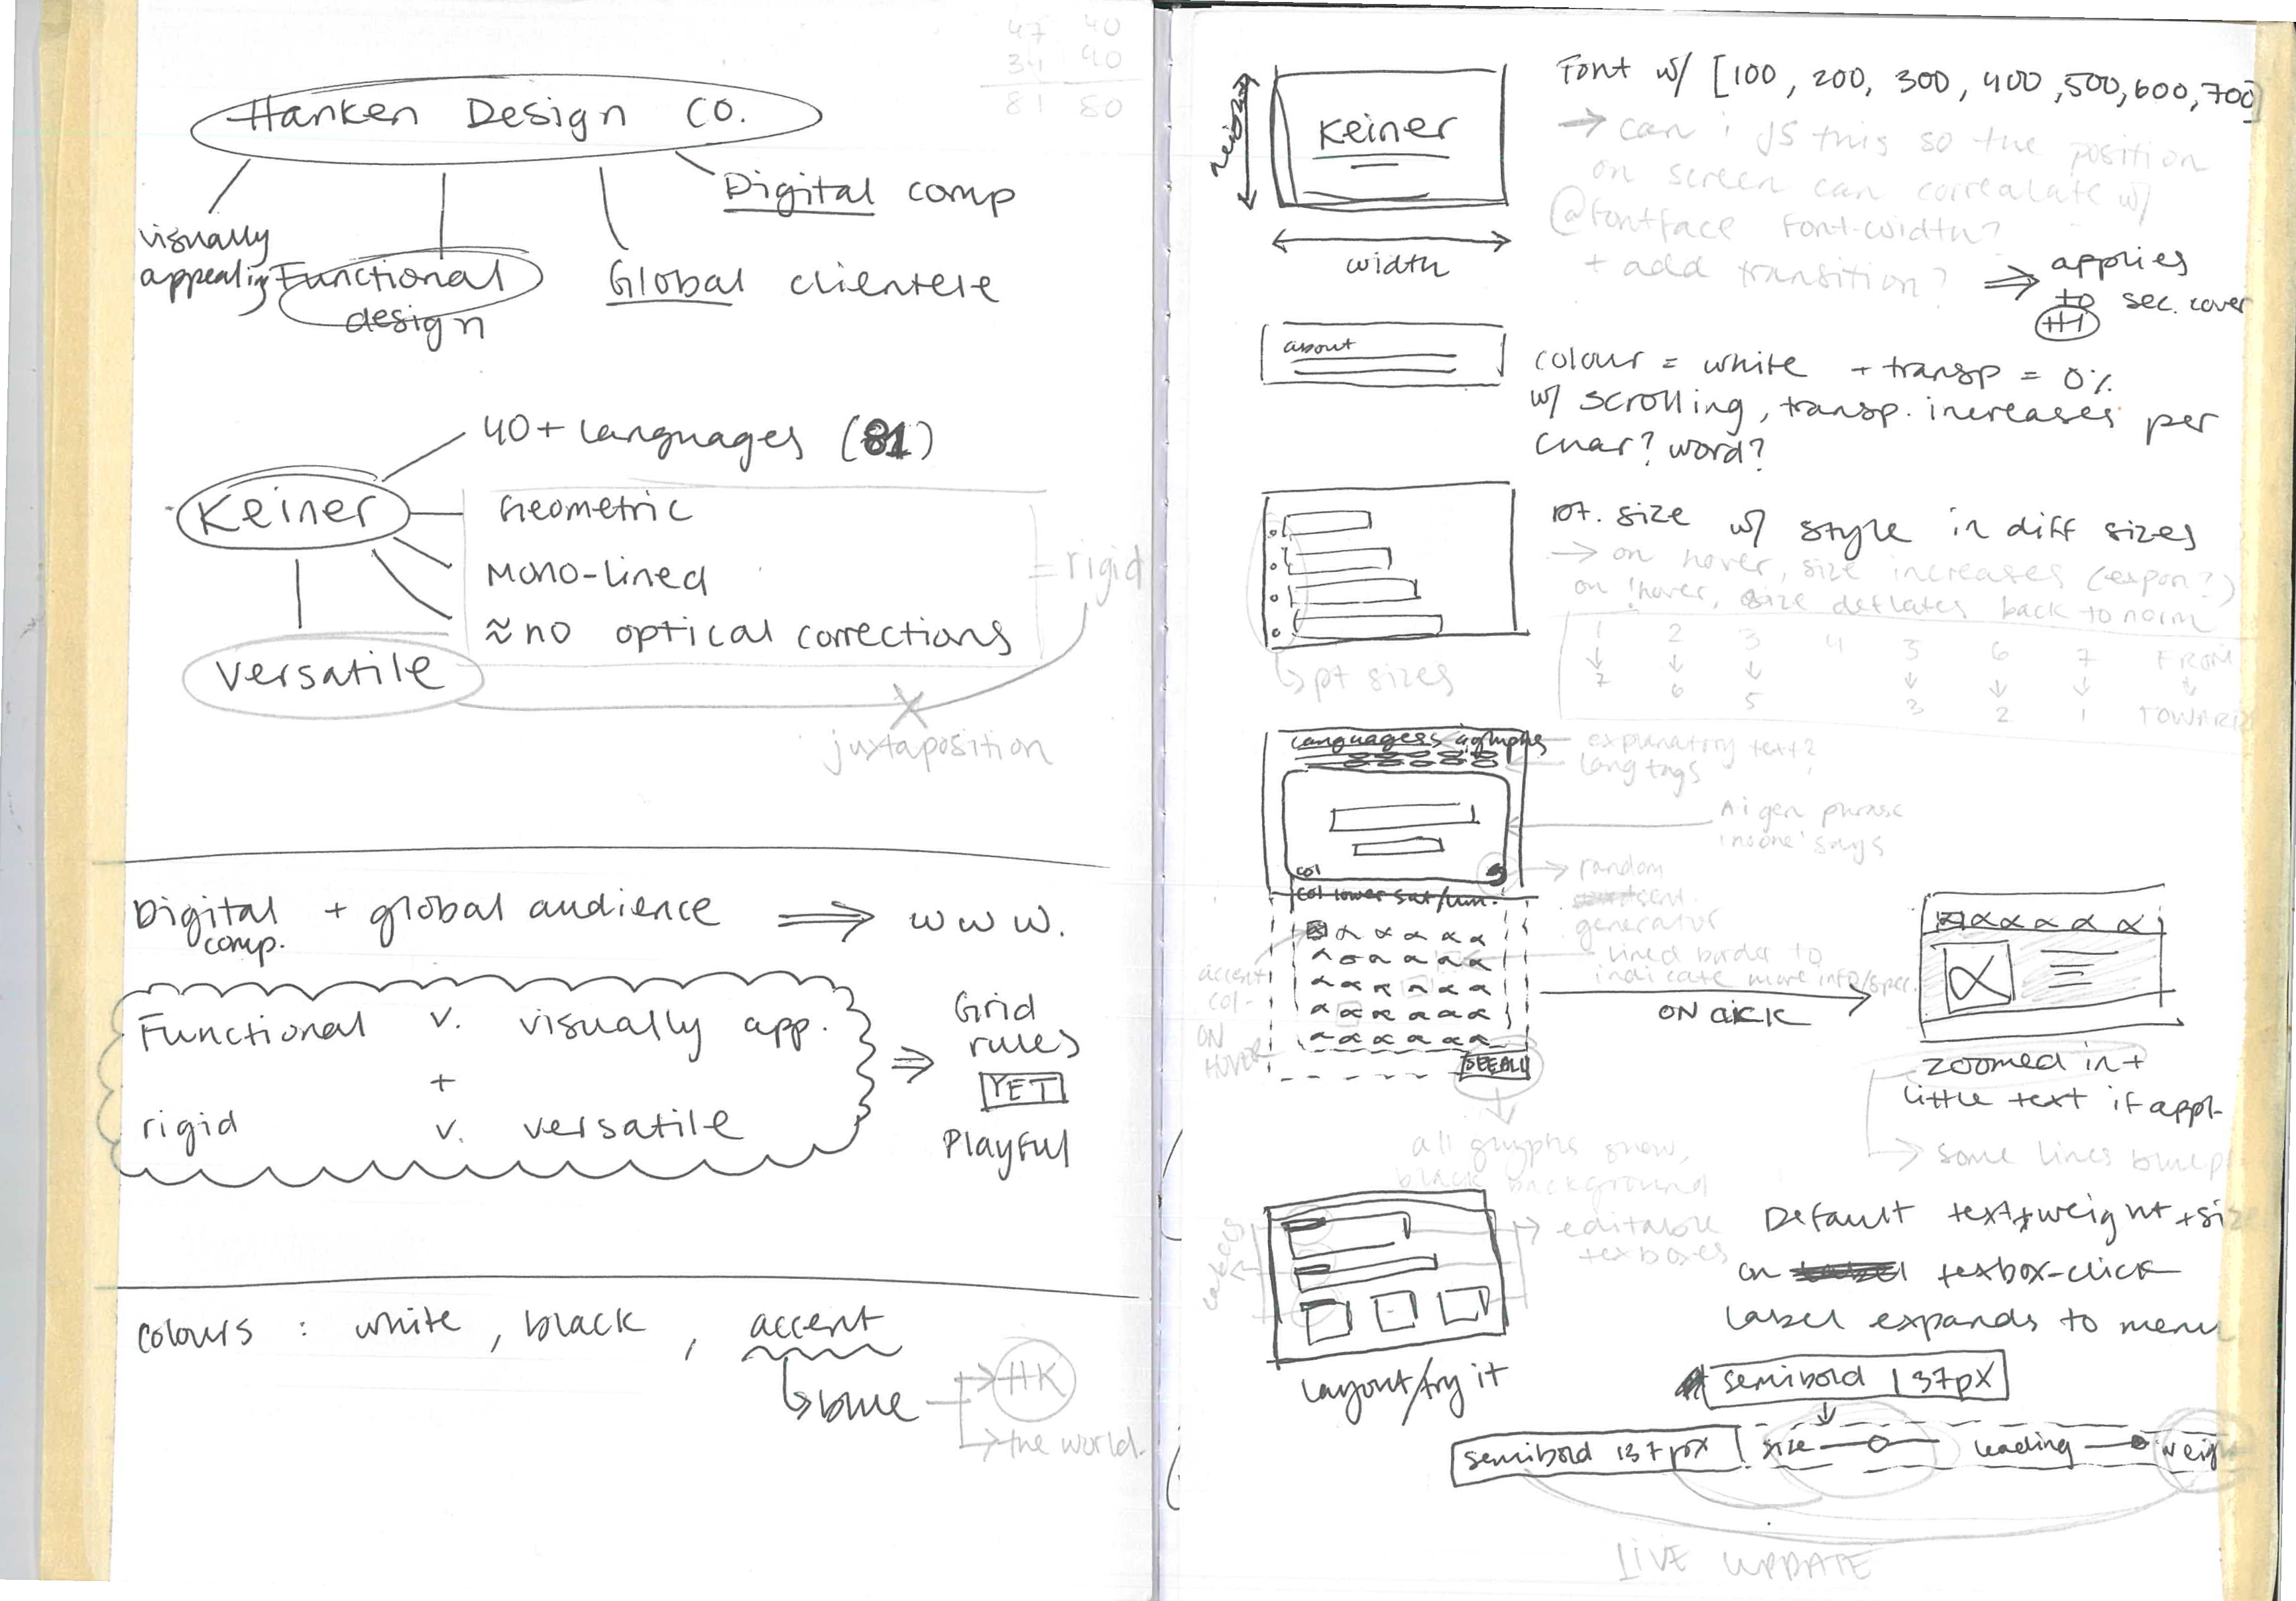 47 40
34 40
81 80
Hanken Design Co.
visually
appealing
Functional
design
Global clientele
Digital comp
40+ languages (81)
Keiner
Geometric
Mono-lined
≈ no optical corrections
= rigid
versatile
juxtaposition
Digital + global audience ⟹ www.
comp.
Functional v. visually app.
+
rigid v. versatile
Grid
rules
YET
Playful
colours : white, black, accent
blue
HK
the world.
Font w/ [100, 200, 300, 400, 500, 600, 700]
Keiner
height
width
→ can i JS this so the position
on screen can correalate w/
@fontface font-width?
+ add transition?
⟹ applies
to sec. cover
H1
about
colour = white + transp = 0%
w/ scrolling, transp. increases per
char? word?
pt. size w/ style in diff sizes
→ on hover, size increases (expon?)
on !hover, size deflates back to norm
pt sizes
1 2 3 4 5 6 7 FROM
↓ ↓ ↓ ↓ ↓ ↓ ↓
7 6 5 3 2 1 TOWARDS
languages glyphs
explanatory text?
lang tags
Ai gen phrase
'noone' says
col
random
sent.
generator
col lower sat/lum.
lined border to
indicate more info/spec.
accent
col-
ON
HOVER
SEE ALL
ON CLICK
zoomed in +
little text if appl.
→ some lines bluep
all glyphs show,
black background
labels
editable
texboxes
layout/try it
Default text+weight+siz
on texbox-click
label expands to menu
semibold 137px
semibold 137px size leading weigh
LIVE UPDATE